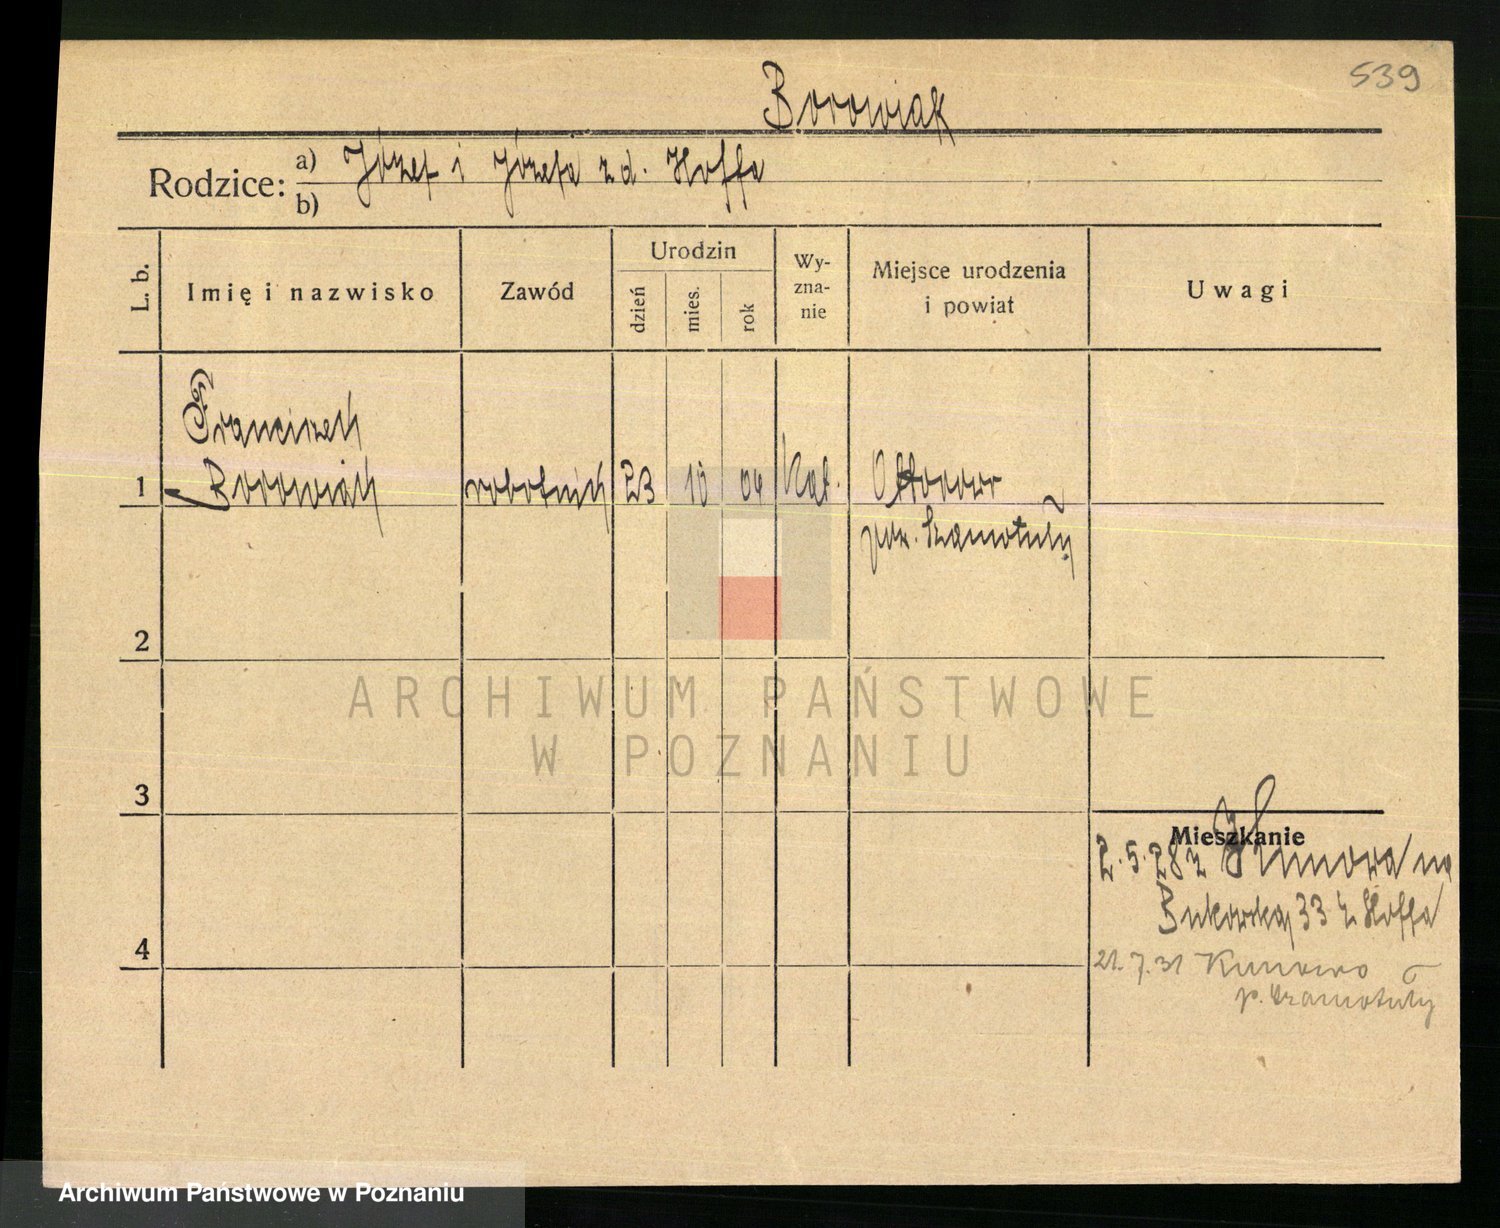 539
Borowiak
Rodzice: a) Józef i Józefa z d. Hoffa
b)
L. b.
Imię i nazwisko
Zawód
Urodzin
dzień
mies.
rok
Wy-
zna-
nie
Miejsce urodzenia
i powiat
Uwagi
Franciszek
1 Borowiak robotnik 23 10 04 Kat. Ottorowo
pow. Szamotuły
2
3
4
Mieszkanie
2.5.28 z na
Bukowską 33 Hoffa
21.7.31 Kunowo
p. Szamotuły
ARCHIWUM PAŃSTWOWE
W POZNANIU
Archiwum Państwowe w Poznaniu